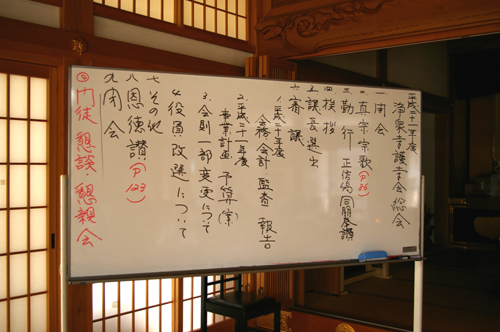 平成二十一年度
浄衆寺護寺会総会
一、開会
二、真宗宗歌(P36)
三、勤行 正信偈 同朋奉讃
四、挨拶
五、議長選出
六、審議
平成二十年度
会務会計監査報告
2.平成二十一年度
事業計画 予算(案)
3.会則一部変更について
4.役員改選について
七、その他
八、恩徳讃(P123)
九、閉会
◎門徒懇談・懇親会